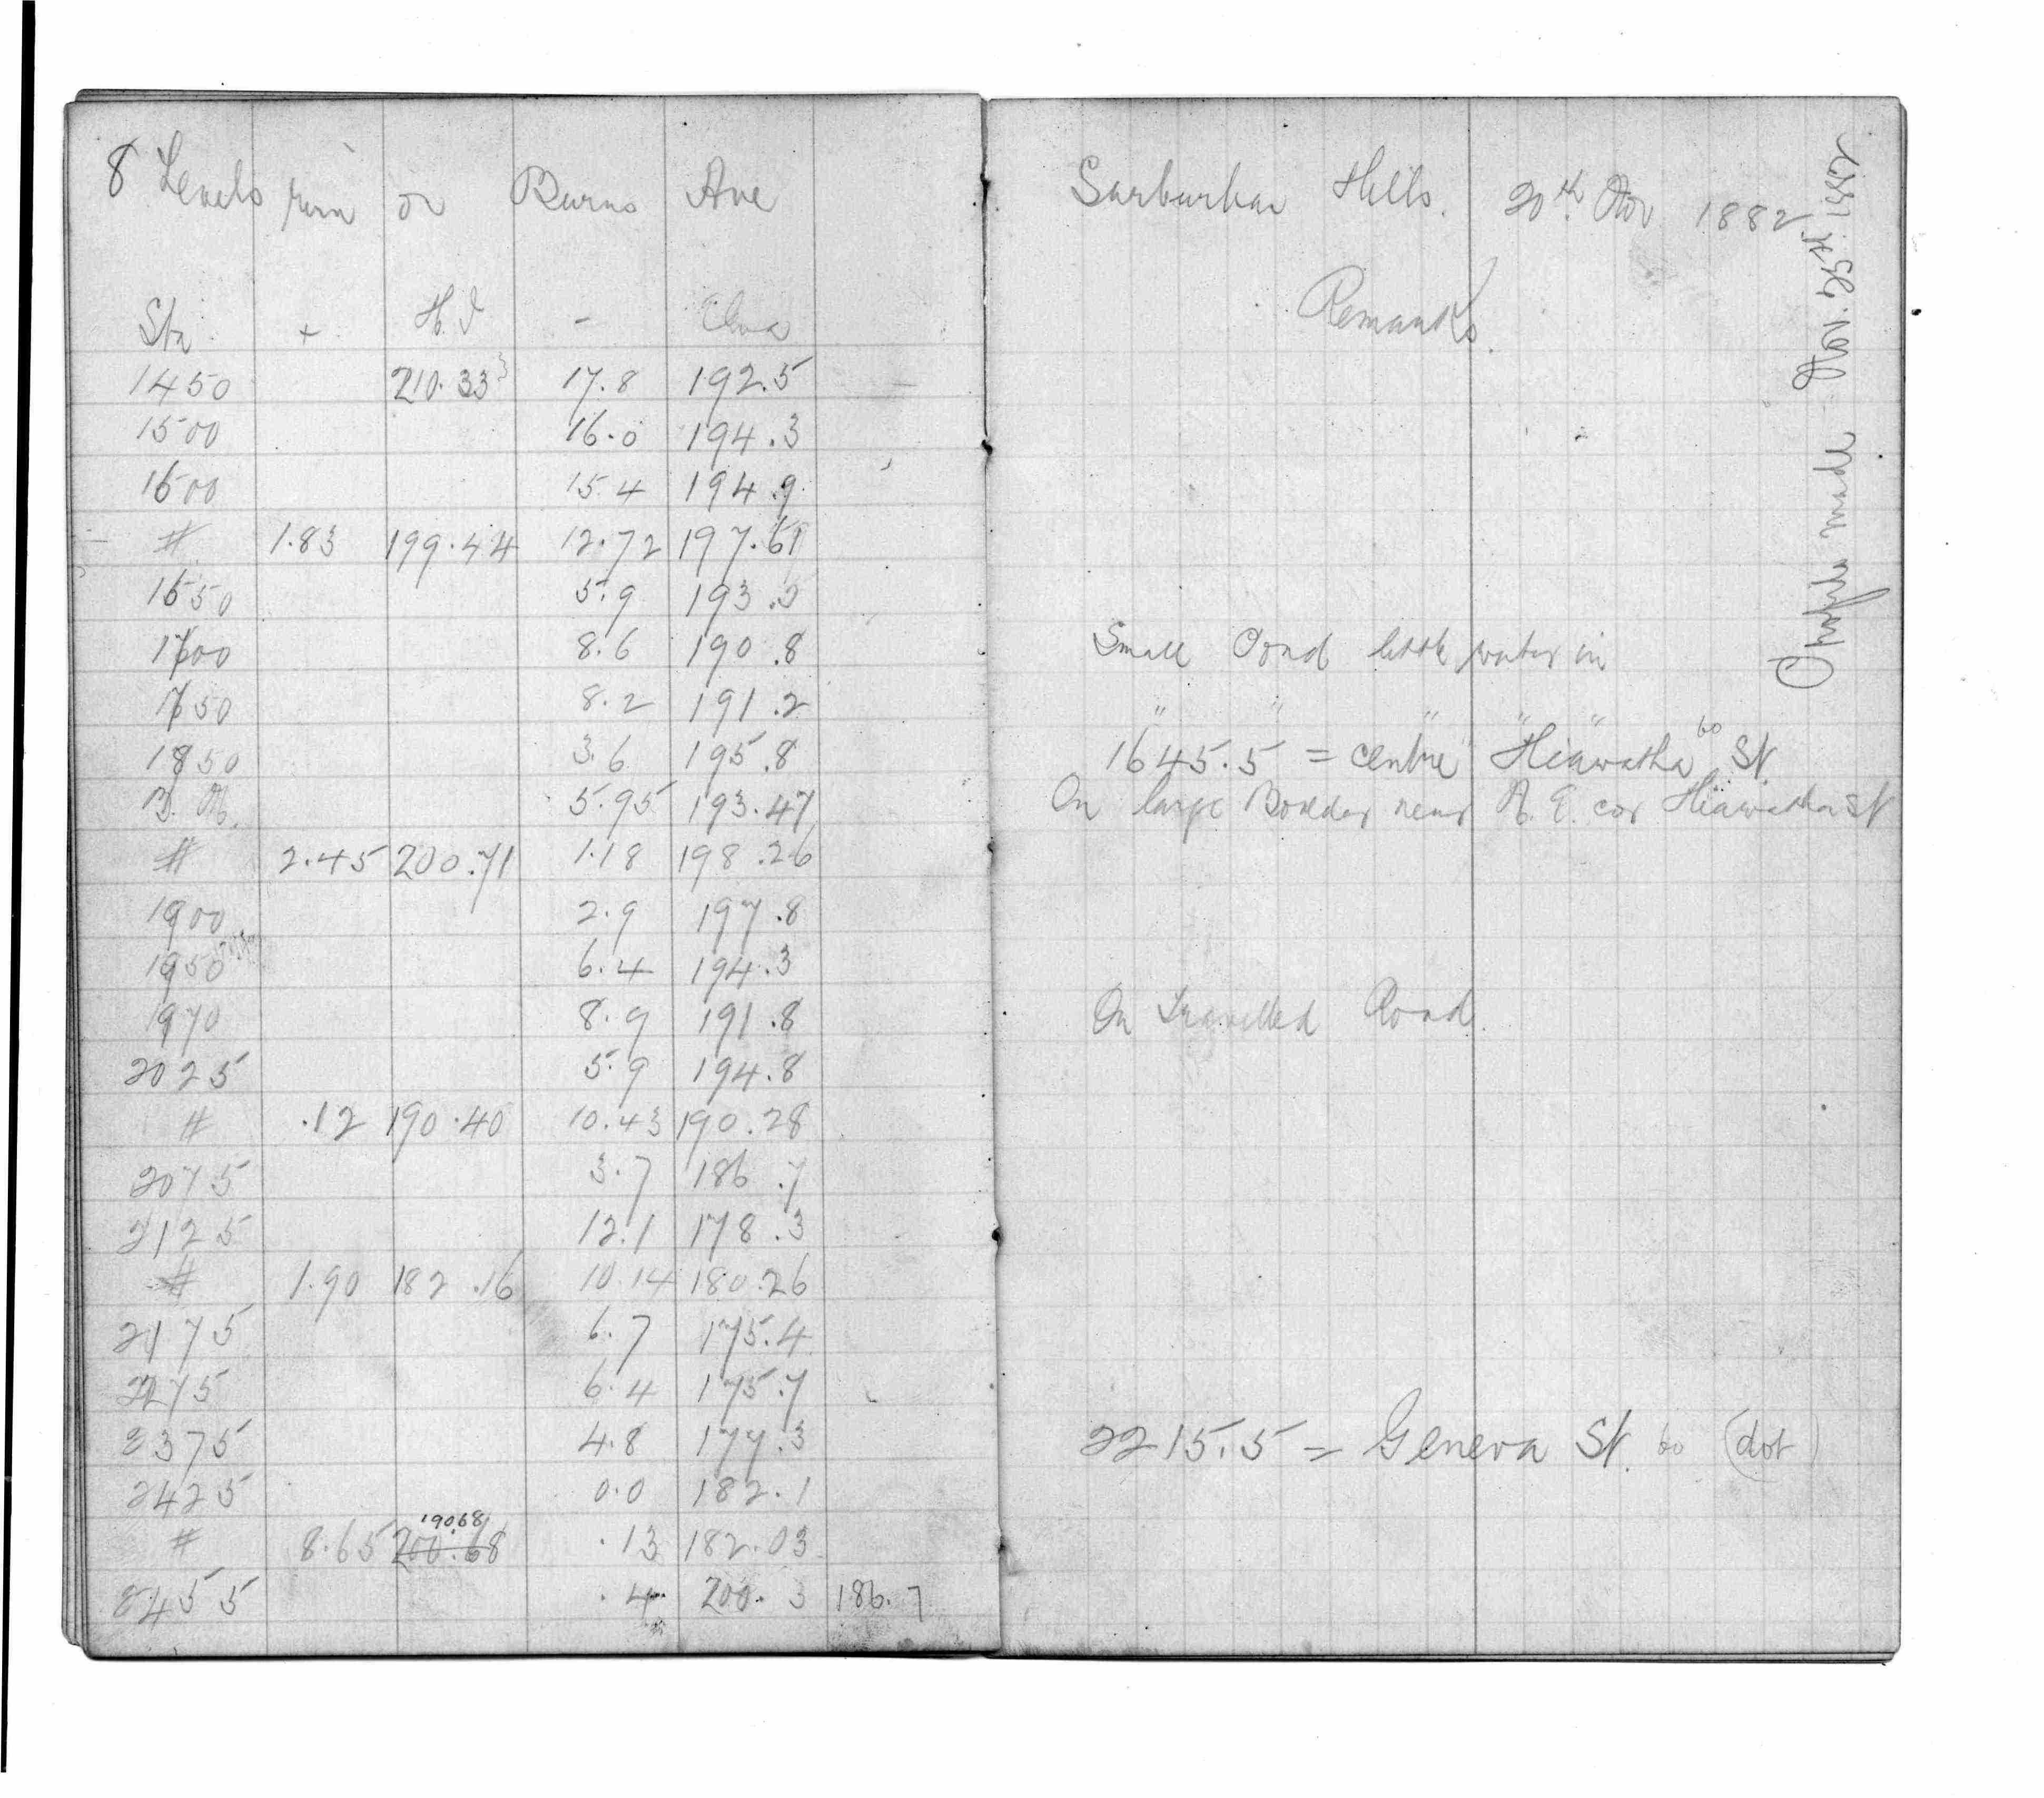 8 Levels run on Burns Ave
Sta + H.I - Elva
1450 210.33 17.8 192.5
1500 16.0 194.3
1600 15.4 194.9
# 1.83 199.44 12.72 197.61
1650 5.9 193.5
1700 8.6 190.8
1750 8.2 191.2
1850 3.6 195.8
B. M. 5.95 193.47
# 2.45 200.71 1.18 198.26
1900 2.9 197.8
1950 6.4 194.3
1970 8.9 191.8
2025 5.9 194.8
# .12 190.40 10.43 190.28
2075 3.7 186.7
2125 12.1 178.3
# 1.90 182.16 10.14 180.26
2175 6.7 175.4
2275 6.4 175.7
2375 4.8 177.3
2425 0.0 182.1
190.68
# 8.65 200.68 .13 182.03
2455 .4 200.3 186.7
Surburban Hills. 20th Nov 1882
Remarks.
Small Pond little water in
" " " " "
1645.5 = centre Hiawatha 60 St.
On large Boulder near N. E. cor Hiawatha St
On Travelled Road.
2215.5 = Geneva St. 60 (dot)
Profile made Nov. 25th. 1882